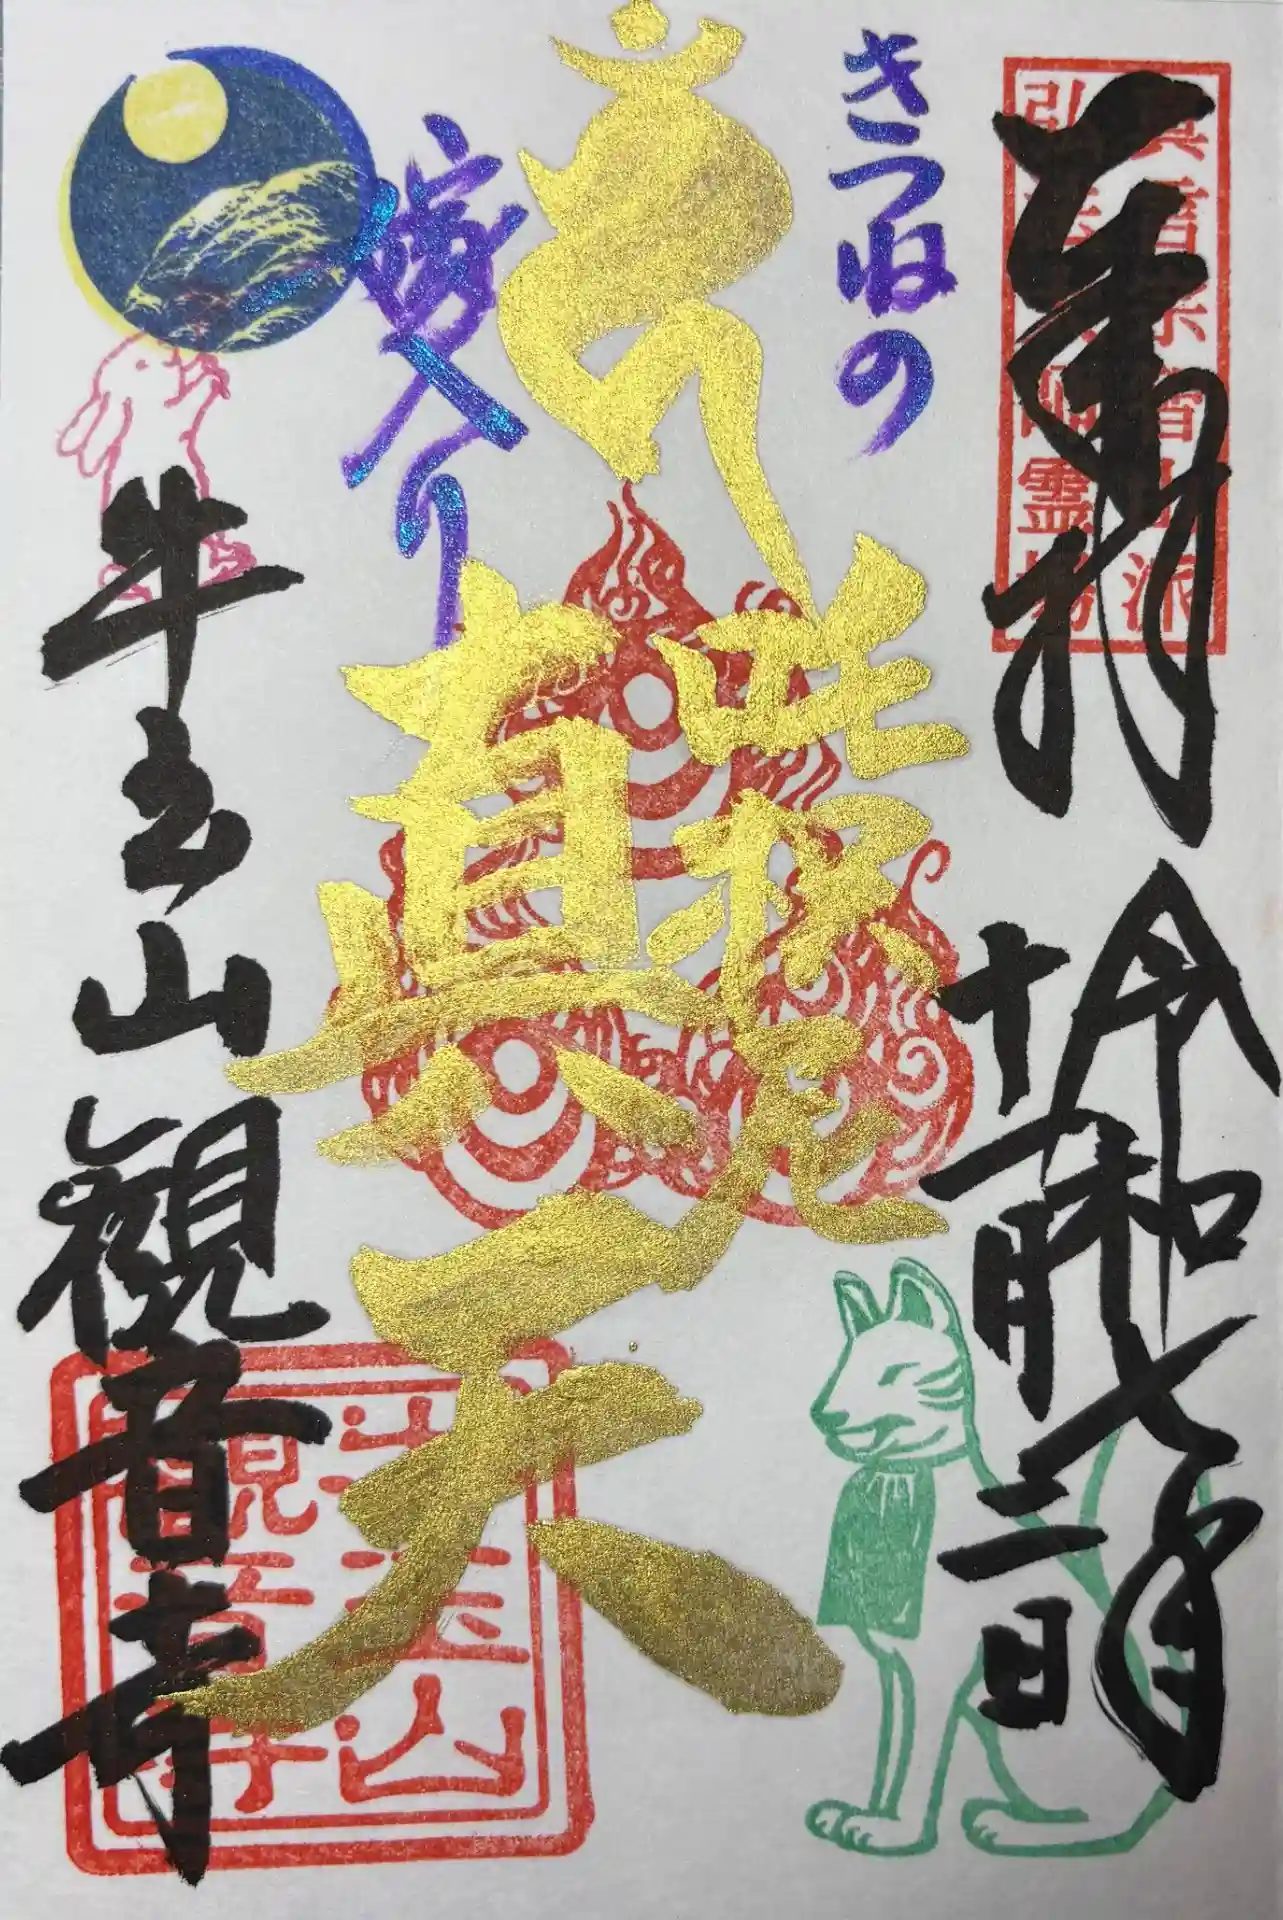 真言宗智山派
弘法大師霊場
奉拝
令和七年
十一月三日
きつねの
嫁入り
荼枳尼
真天
牛玉山観音寺
牛玉山
観音寺